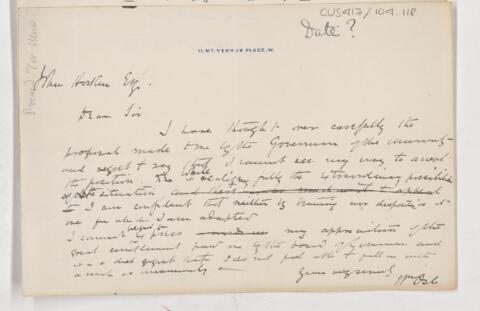 CUS417/104.118
Date?
11. MT. VERNON PLACE, W.
John Hoskin Esq.
Dear Sir
I have thought over carefully the
proposal made to me by the Governors of the University
and regret to say that I cannot see my way to accept
the position. While realizing fully the extraordinary possibilities
of the situation
I am confident that neither by training nor disposition is it
one for which I am adapted
I cannot express my appreciation of the
great compliment paid me by the board of Governors and
it is a deep regret that I do not feel able to fall in with